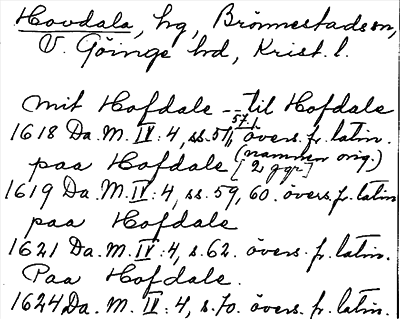 Hovdala, hg, Brönnestads sn,
V. Göinge hd, Krist. l.
mit Hofdale -- til Hofdale
1618 Da. M. IV: 4, ss. 51, 57. övers. fr. latin.
paa Hofdale (namnen orig.) [2 ggr]
1619 Da. M. IV: 4, ss. 59, 60. övers. fr. latin
paa Hofdale
1621 Da. M. IV: 4, s. 62. övers. fr. latin.
Paa Hofdale.
1624 Da. M. IV: 4, s. 70. övers. fr. latin.